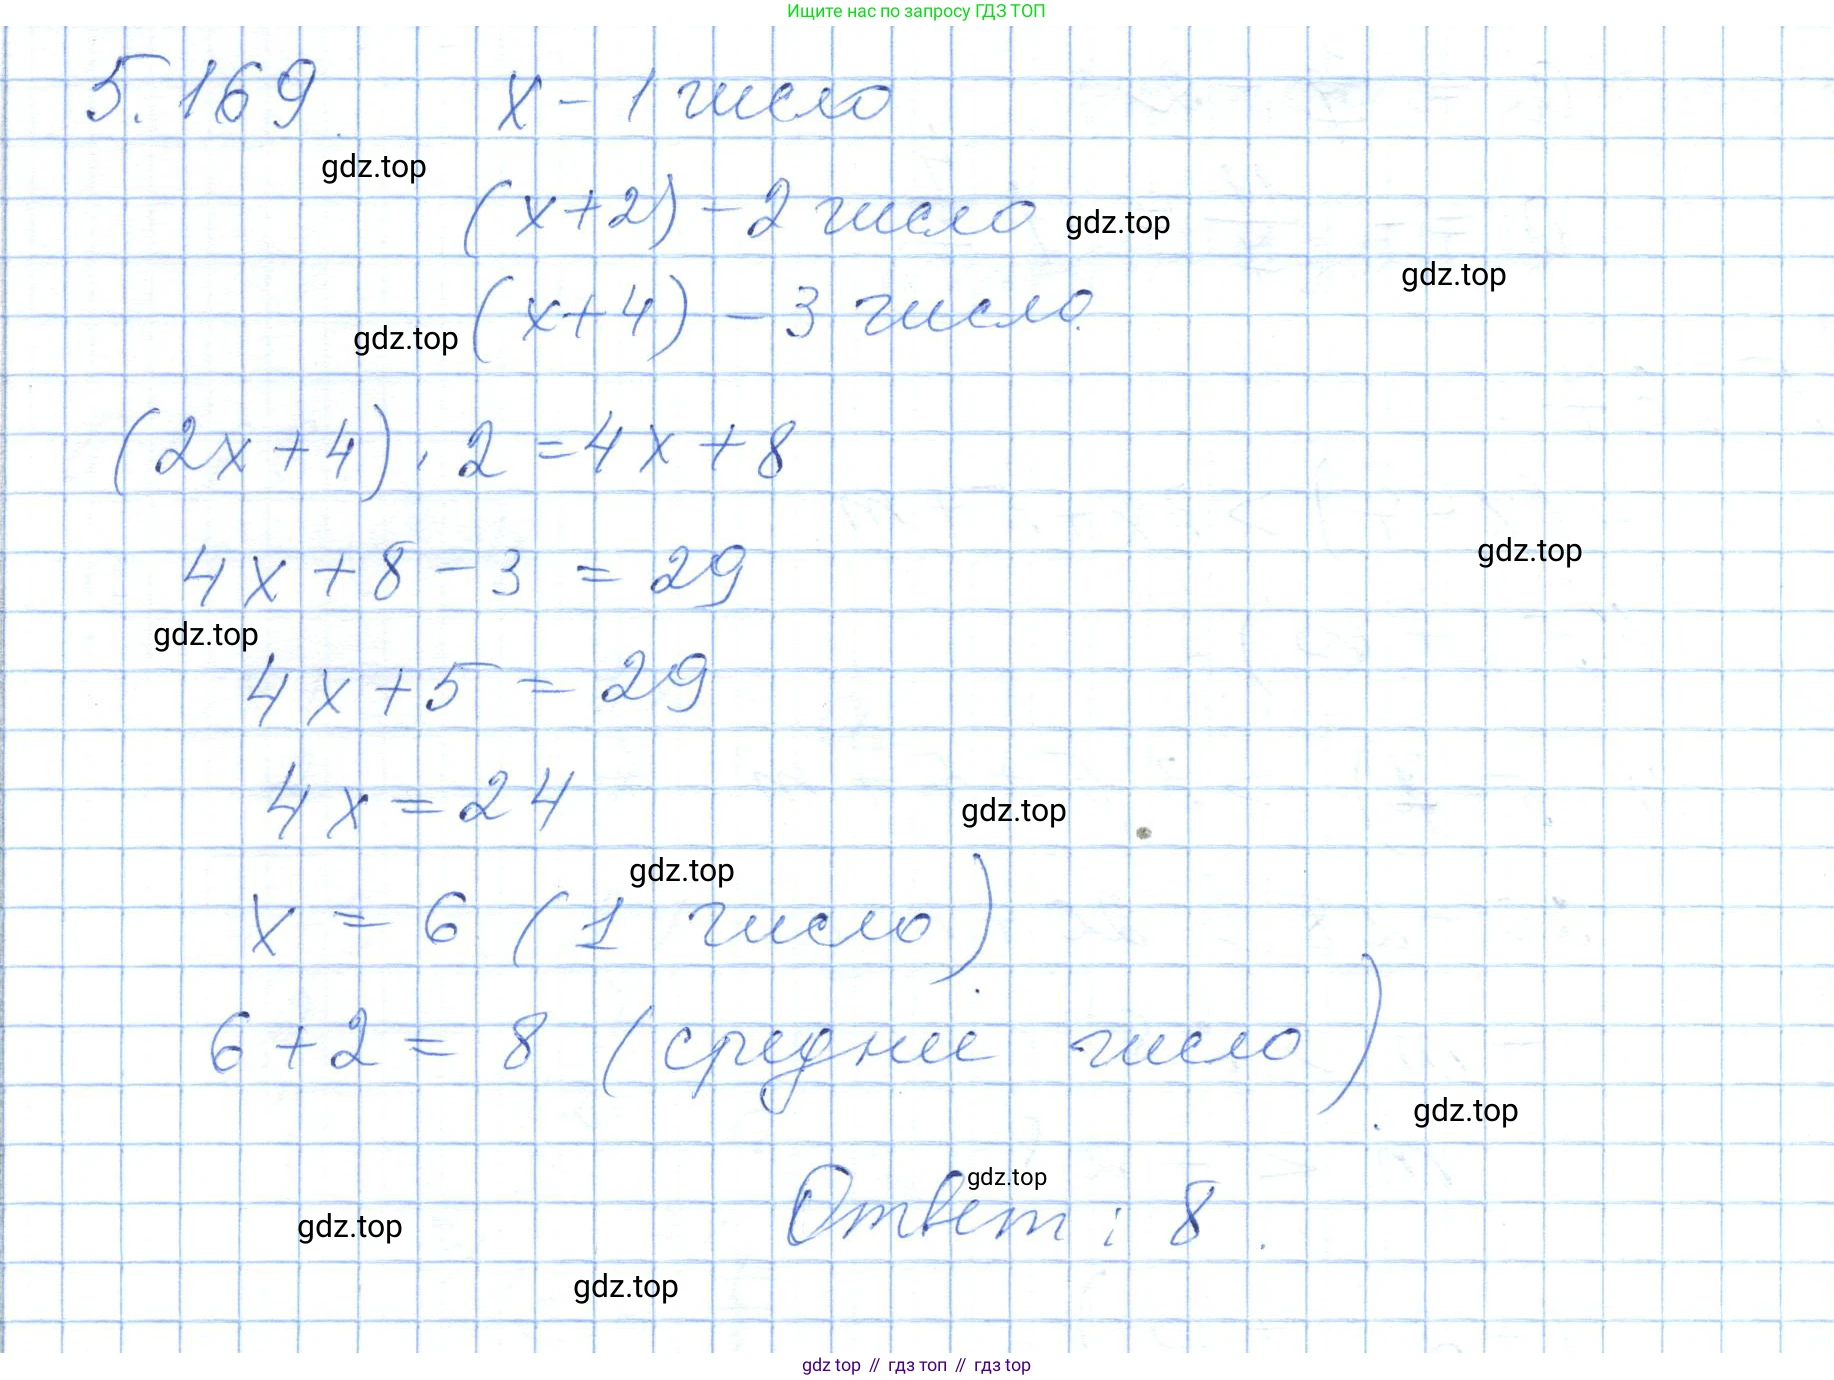 Ищите нас по запросу ГДЗ ТОП
5.169. x - 1 число
gdz.top
(x+2) - 2 число
gdz.top
gdz.top
(x+4) - 3 число
gdz.top
(2x+4) · 2 = 4x + 8
4x + 8 - 3 = 29
gdz.top
gdz.top
4x + 5 = 29
4x = 24
gdz.top
gdz.top
x = 6 (1 число).
6 + 2 = 8 (средние число).
gdz.top
gdz.top
Ответ: 8.
gdz.top
gdz.top
gdz top // гдз топ // гдз top